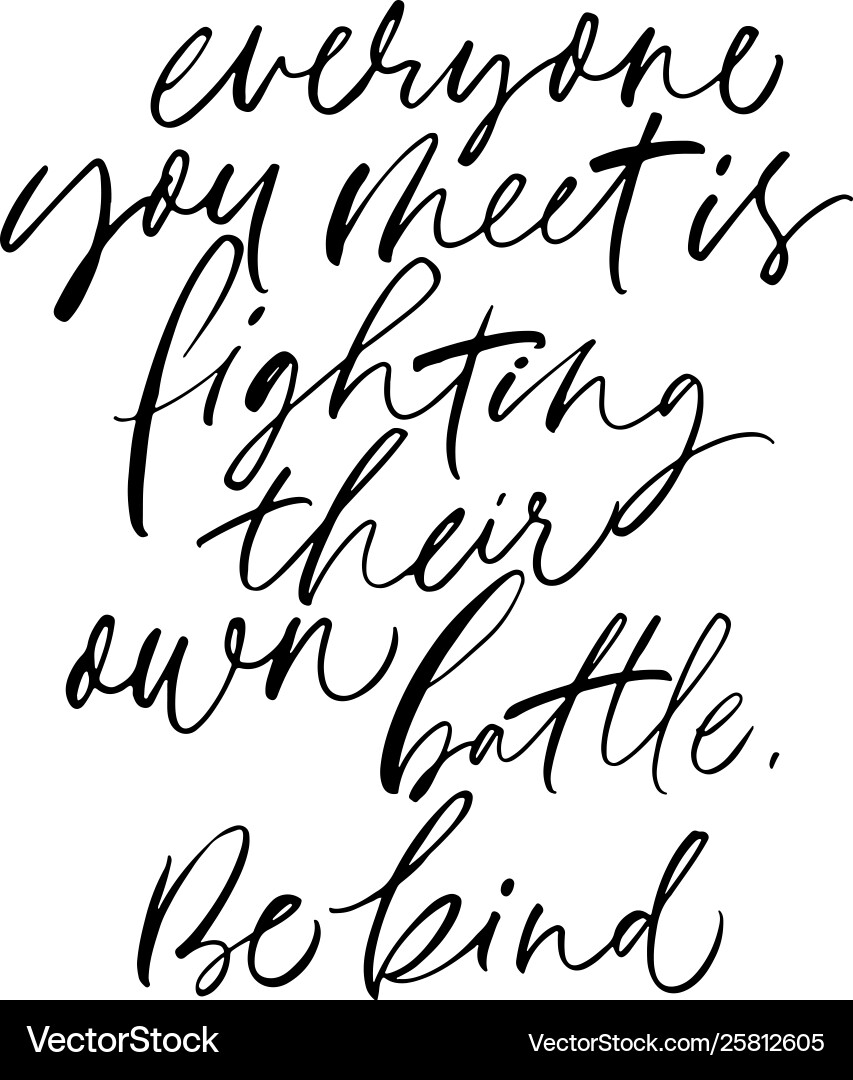 everyone
you meet is
fighting
their
own battle.
Be kind
VectorStock
VectorStock.com/25812605